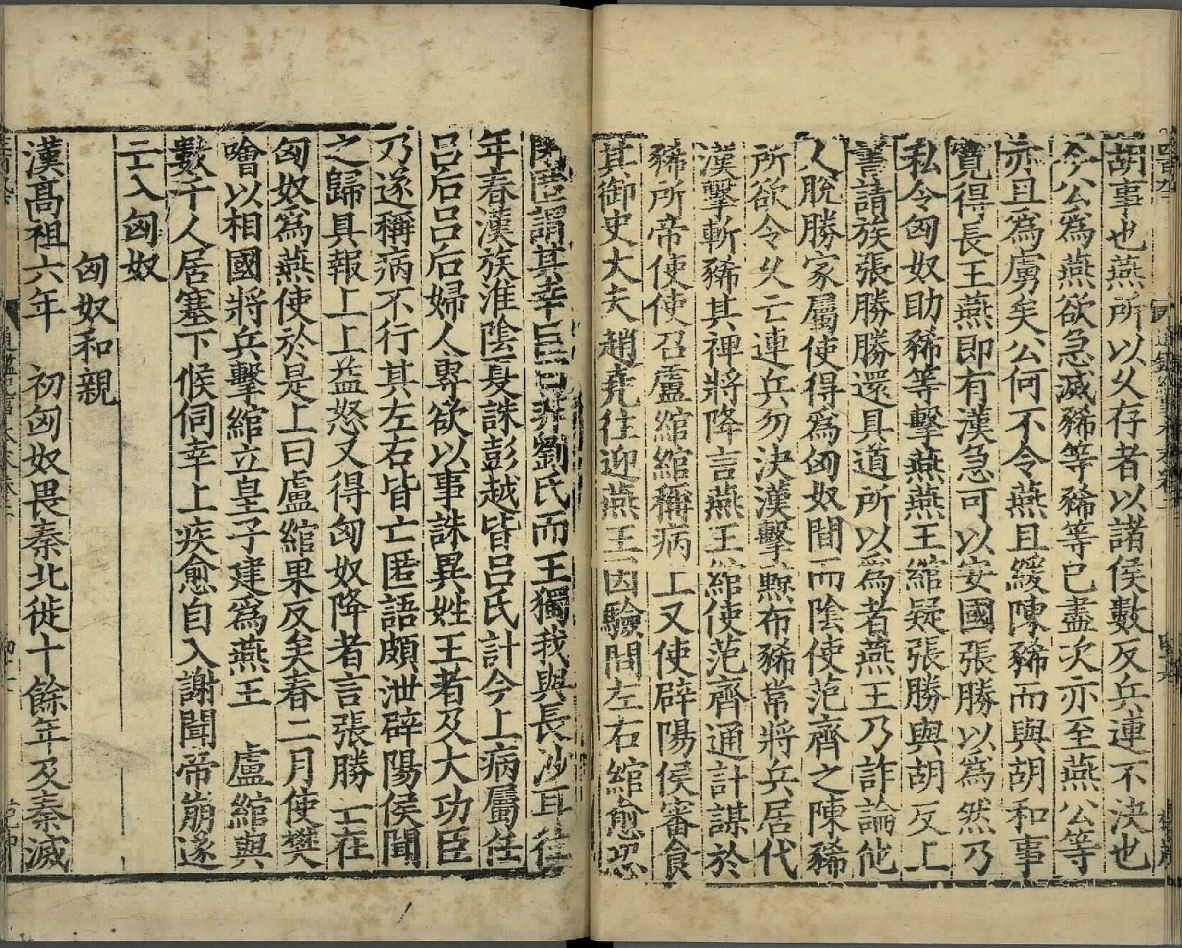 胡事也燕所以久存者以諸侯數反兵連不決也
今公爲燕欲急滅豨等豨等已盡次亦至燕公等
亦且爲虜矣公何不令燕且緩陳豨而與胡和事
寬得長王燕即有漢急可以安國張勝以爲然乃
私令匈奴助豨等擊燕燕王綰疑張勝與胡反上
書請族張勝勝還具道所以爲者燕王乃詐論他
人脫勝家屬使得爲匈奴間而陰使范齊之陳豨
所欲令久亡連兵勿決漢擊黥布豨常將兵居代
漢擊斬豨其裨將降言燕王綰使范齊通計謀於
豨所帝使使召盧綰綰稱病上又使辟陽侯審食
其御史大夫趙堯往迎燕王因驗問左右綰愈恐
閉匿謂其幸臣曰非劉氏而王獨我與長沙耳往
年春漢族淮陰夏誅彭越皆呂氏計今上病屬任
呂后呂后婦人專欲以事誅異姓王者及大功臣
乃遂稱病不行其左右皆亡匿語頗泄辟陽侯聞
之歸具報上上益怒又得匈奴降者言張勝亡在
匈奴爲燕使於是上曰盧綰果反矣春二月使樊
噲以相國將兵擊綰立皇子建爲燕王 盧綰與
數千人居塞下候伺幸上疾愈自入謝聞帝崩遂
亡入匈奴
匈奴和親
漢高祖六年 初匈奴畏秦北徙十餘年及秦滅